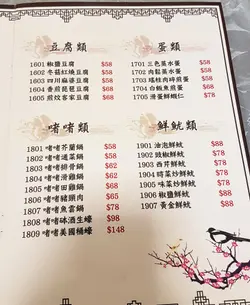 豆腐類
1601 椒鹽豆腐 $58
1602 冬菇紅燒豆腐 $58
1603 四川麻婆豆腐 $58
1604 香煎琵琶豆腐 $68
1605 煎炆客家豆腐 $68
蛋類
1701 三色蒸水蛋 $58
1702 肉鬆蒸水蛋 $58
1703 瑤柱肉碎煎蛋 $58
1704 白飯魚煎蛋 $68
1705 滑蛋鮮蝦仁 $78
啫啫類
1801 啫啫芥蘭鍋 $58
1802 啫啫通菜鍋 $58
1803 啫啫排骨鍋 $62
1804 啫啫滑雞鍋 $62
1805 啫啫田雞鍋 $68
1806 啫啫豬膶肉 $68
1807 啫啫魚雲鍋 $78
1808 啫啫砵酒生蠔 $98
1809 啫啫美國桶蠔 $148
鮮魷類
1901 油泡鮮魷 $78
1902 豉椒鮮魷 $78
1903 西芹鮮魷 $78
1904 時菜炒鮮魷 $78
1905 味菜炒鮮魷 $78
1906 椒鹽鮮魷 $88
1907 黃金鮮魷 $88